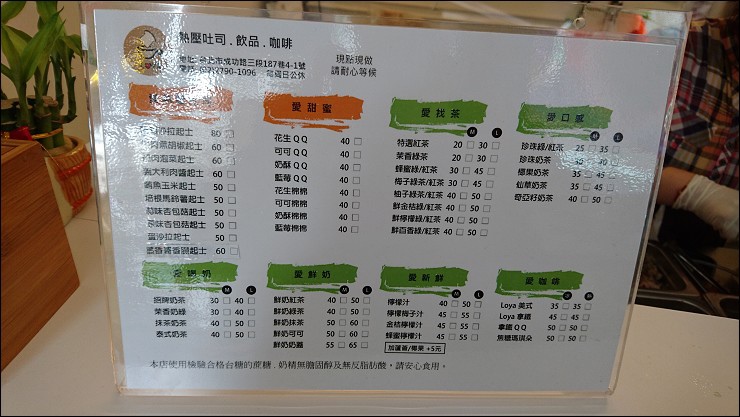 熱壓吐司 . 飲品 . 咖啡
市成功路三段187巷4-1號
(02)2790-1096
現點現做
請耐心等候
沙拉起士 80
燻胡椒起士 60
泡菜起士 60
義大利肉醬起士 60
鮪魚玉米起士 50
培根馬鈴薯起士 50
杏包菇起士 50
杏包菇起士 50
蛋沙拉起士 50
起士 60
愛甜蜜
花生QQ 40
可可QQ 40
奶酥QQ 40
藍莓QQ 40
花生棉棉 40
可可棉棉 40
奶酥棉棉 40
藍莓棉棉 40
愛找茶
M L
特選紅茶 20 30
茉香綠茶 20 30
蜂蜜綠/紅茶 30 45
梅子綠茶/紅茶 30 45
柚子綠茶/紅茶 40 50
鮮金桔綠/紅茶 40 50
鮮檸檬綠/紅茶 40 50
鮮百香綠/紅茶 40 50
愛口感
M L
珍珠綠/紅茶 25 35
珍珠奶茶 30 40
椰果奶茶 35 45
仙草奶茶 35 45
奇亞籽奶茶 40 50
愛喝奶
M L
招牌奶茶 30 40
茉香奶綠 30 40
抹茶奶茶 40 50
泰式奶茶 40 50
愛鮮奶
M L
鮮奶紅茶 40 50
鮮奶綠茶 40 50
鮮奶抹茶 50 60
鮮奶可可 50 60
鮮奶奶蓋 55 65
愛新鮮
M L
檸檬汁 40 50
檸檬梅子汁 45 55
金桔檸檬汁 45 55
蜂蜜檸檬汁 45 55
加蘆薈/椰果 +5元
愛咖啡
Loya 美式 35 35
Loya 拿鐵 45 45
拿鐵QQ 50 50
焦糖瑪琪朵 50 50
本店使用檢驗合格台糖的蔗糖 . 奶精無膽固醇及無反脂肪酸，請安心食用。